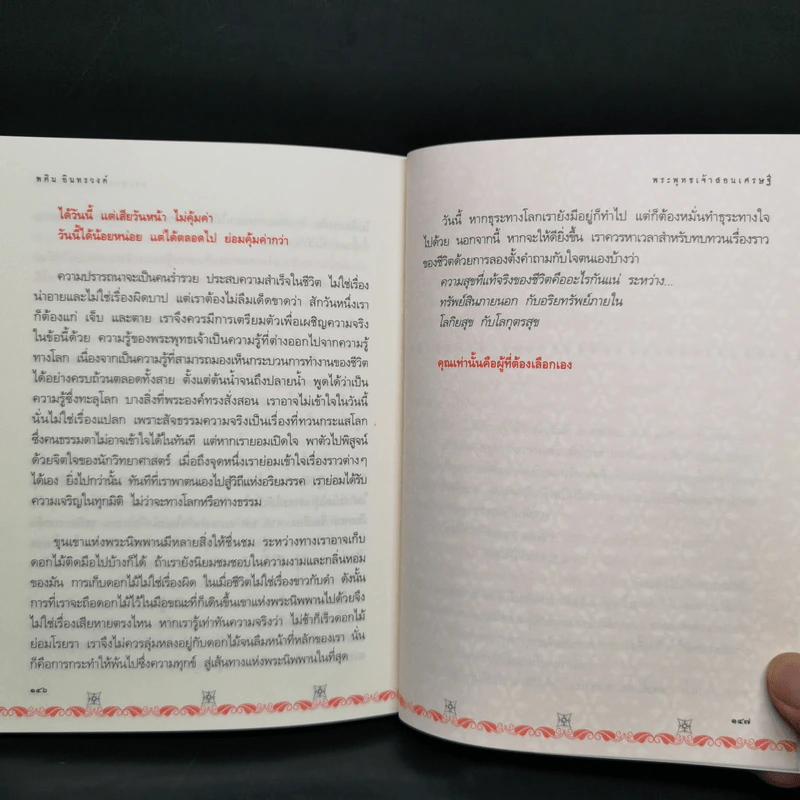 พศิน อินทรวงค์
ได้วันนี้ แต่เสียวันหน้า ไม่คุ้มค่า
วันนี้ได้น้อยหน่อย แต่ได้ตลอดไป ย่อมคุ้มค่ากว่า
ความปรารถนาจะเป็นคนร่ำรวย ประสบความสำเร็จในชีวิต ไม่ใช่เรื่อง
น่าอายและไม่ใช่เรื่องผิดบาป แต่เราต้องไม่ลืมเด็ดขาดว่า สักวันหนึ่งเรา
ก็ต้องแก่ เจ็บ และตาย เราจึงควรมีการเตรียมตัวเพื่อเผชิญความจริง
ในข้อนี้ด้วย ความรู้ของพระพุทธเจ้าเป็นความรู้ที่ต่างออกไปจากความรู้
ทางโลก เนื่องจากเป็นความรู้ที่สามารถมองเห็นกระบวนการทำงานของชีวิต
ได้อย่างครบถ้วนตลอดทั้งสาย ตั้งแต่ต้นน้ำจนถึงปลายน้ำ พูดได้ว่าเป็น
ความรู้ซึ่งทะลุโลก บางสิ่งที่พระองค์ทรงสั่งสอน เราอาจไม่เข้าใจในวันนี้
นั่นไม่ใช่เรื่องแปลก เพราะสัจธรรมความจริงเป็นเรื่องที่ทวนกระแสโลก
ซึ่งคนธรรมดาไม่อาจเข้าใจได้ในทันที แต่หากเรายอมเปิดใจ พาตัวไปพิสูจน์
ด้วยจิตใจของนักวิทยาศาสตร์ เมื่อถึงจุดหนึ่งเราย่อมเข้าใจเรื่องราวต่างๆ
ได้เอง ยิ่งไปกว่านั้น ทันทีที่เราพาตนเองไปสู่วิถีแห่งอริยมรรค เราย่อมได้รับ
ความเจริญในทุกมิติ ไม่ว่าจะทางโลกหรือทางธรรม
ขุนเขาแห่งพระนิพพานมีหลายสิ่งให้ชื่นชม ระหว่างทางเราอาจเก็บ
ดอกไม้ติดมือไปบ้างก็ได้ ถ้าเรายังนิยมชมชอบในความงามและกลิ่นหอม
ของมัน การเก็บดอกไม้ไม่ใช่เรื่องผิด ในเมื่อชีวิตไม่ใช่เรื่องขาวกับดำ ดังนั้น
การที่เราจะถือดอกไม้ไว้ในมือขณะที่ก็เดินขึ้นเขาแห่งพระนิพพานไปด้วยจึง
ไม่ใช่เรื่องเสียหายตรงไหน หากเรารู้เท่าทันความจริงว่า ไม่ช้าก็เร็วดอกไม้
ย่อมโรยรา เราจึงไม่ควรลุ่มหลงอยู่กับดอกไม้จนลืมหน้าที่หลักของเรา นั่น
ก็คือการกระทำให้พ้นไปซึ่งความทุกข์ สู่เส้นทางแห่งพระนิพพานในที่สุด
๑๔๖
พระพุทธเจ้าสอนเศรษฐี
วันนี้ หากธุระทางโลกเรายังมีอยู่ก็ทำไป แต่ก็ต้องหมั่นทำธุระทางใจ
ไปด้วย นอกจากนี้ หากจะให้ดียิ่งขึ้น เราควรหาเวลาสำหรับทบทวนเรื่องราว
ของชีวิตด้วยการลองตั้งคำถามกับใจตนเองบ้างว่า
ความสุขที่แท้จริงของชีวิตคืออะไรกันแน่ ระหว่าง...
ทรัพย์สินภายนอก กับอริยทรัพย์ภายใน
โลกิยสุข กับโลกุตรสุข
คุณเท่านั้นคือผู้ที่ต้องเลือกเอง
๑๔๗